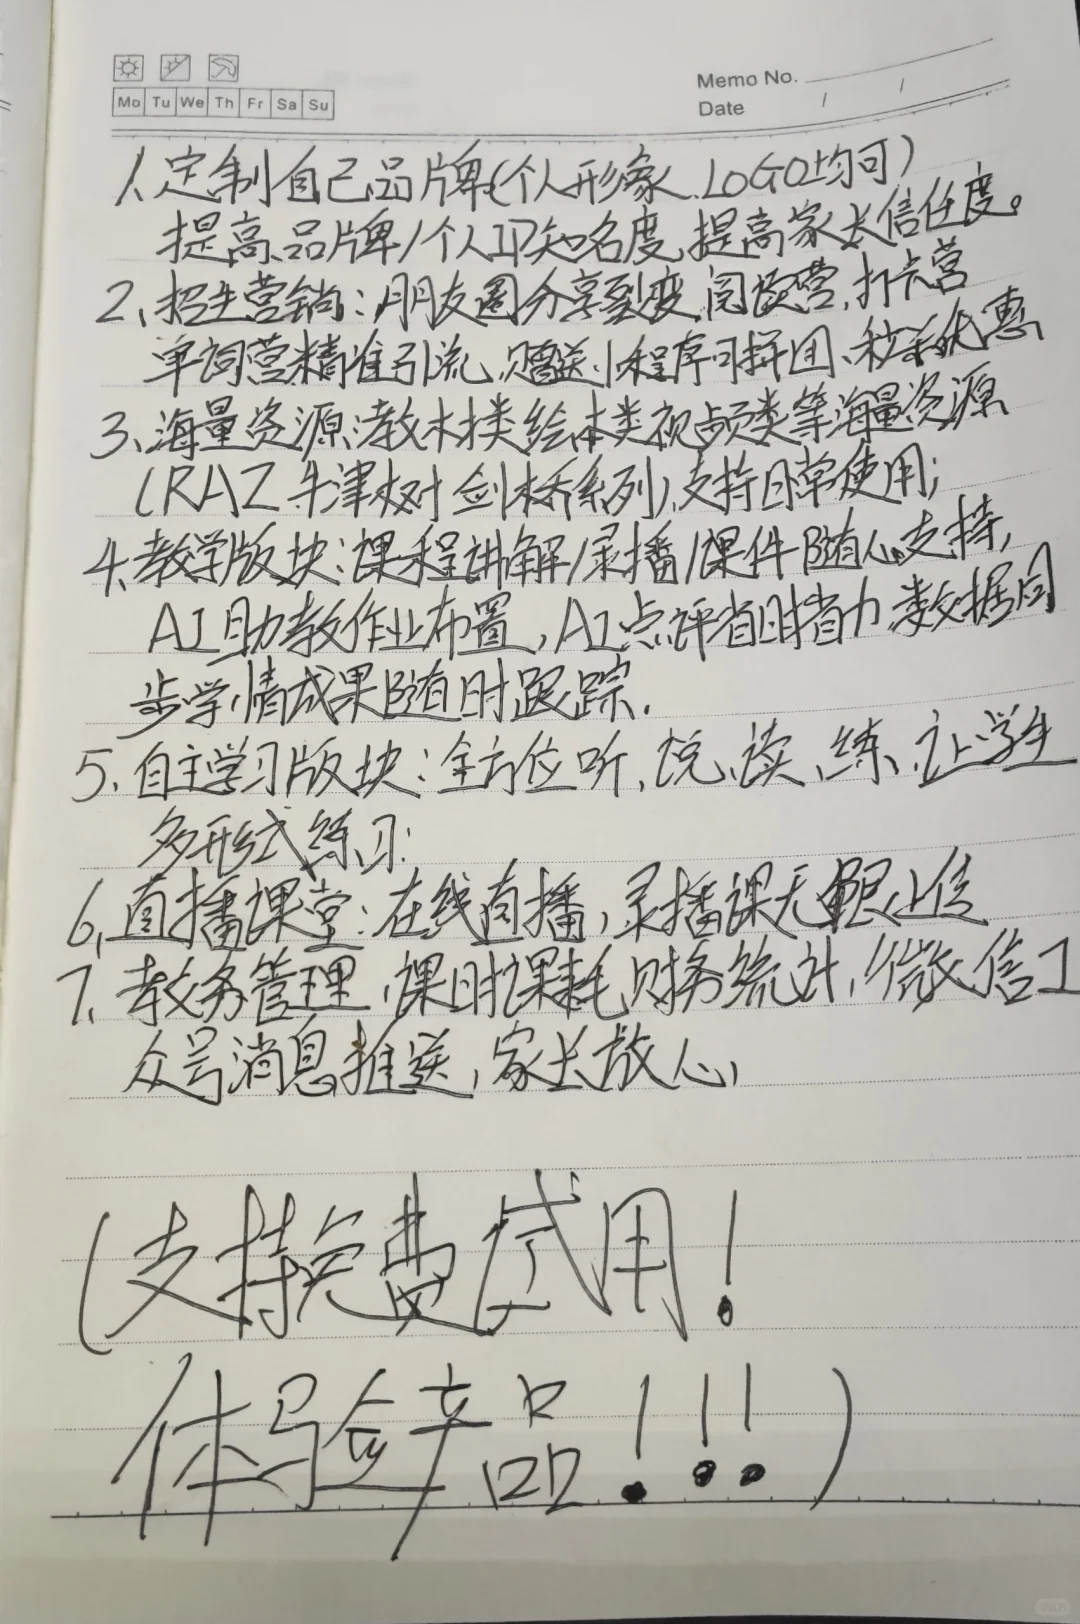 Memo No.
Mo Tu We Th Fr Sa Su
Date / /
1、定制自己品牌(个人形象、LOGO均可)
提高品牌/个人IP知名度,提高家长信任度。
2、招生营销:朋友圈分享裂变,阅读营,打卡营
单词营精准引流,赠送小程序可拼团、秒杀优惠
3、海量资源:教材类绘本类视频类等海量资源
(RAZ 牛津树 剑桥系列),支持日常使用;
4、教学版块:课程讲解/录播/课件随心支持,
AI助教作业布置,AI点评省时省力 数据同
步学情成果随时跟踪.
5、自主学习版块:全方位听、说、读、练、让学生
多形式练习:
6、直播课堂:在线直播,录播课无限上传
7、教务管理,课时课耗,财务统计,微信公
众号消息推送,家长放心,
(支持免费试用!
体验产品!!!)